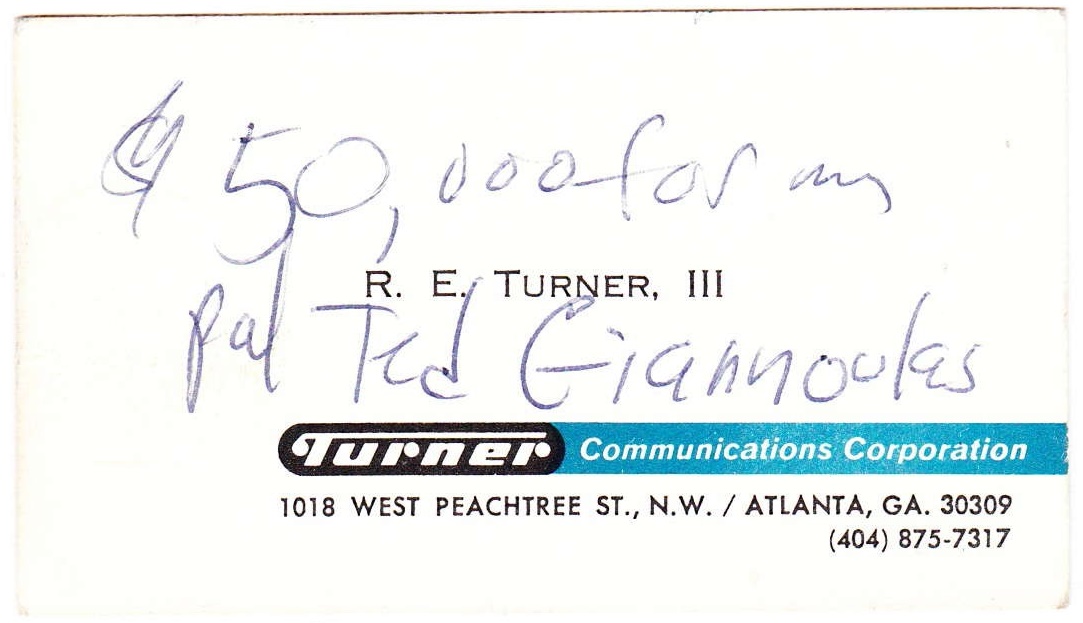 $ 50,000 for my
R. E. TURNER, III
pal Ted Giannoulas
Turner Communications Corporation
1018 WEST PEACHTREE ST., N.W. / ATLANTA, GA. 30309
(404) 875-7317